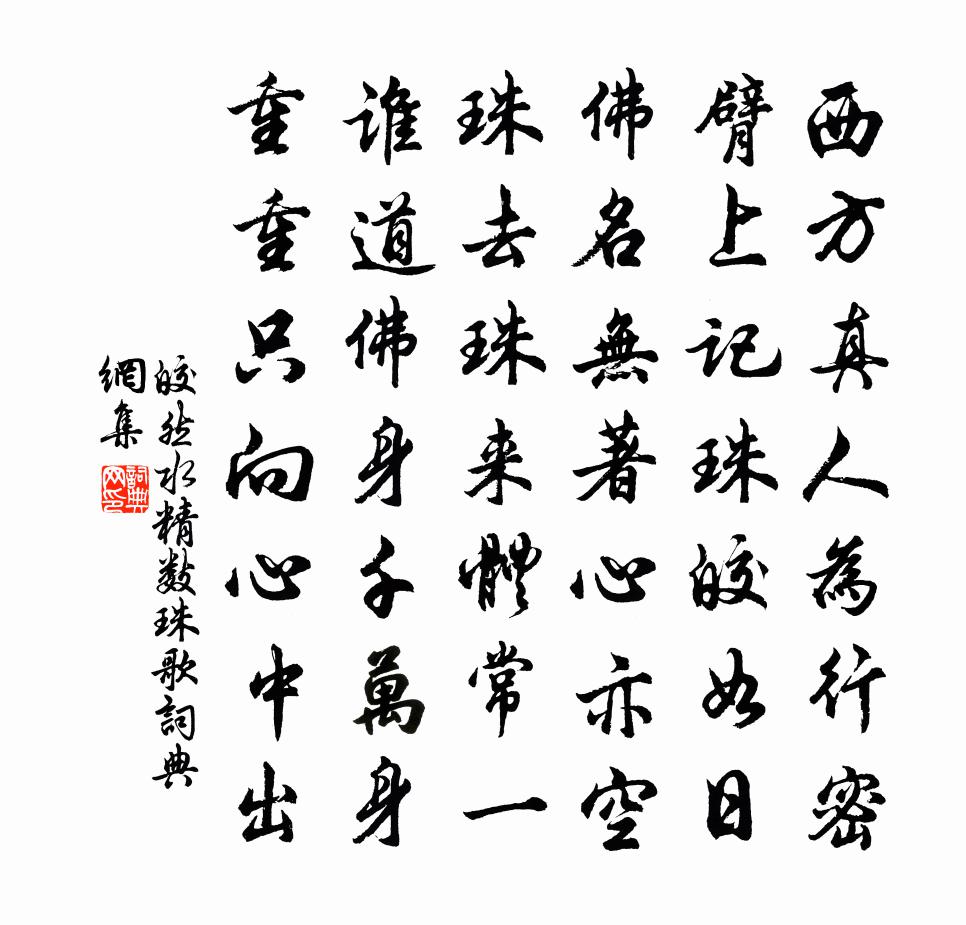 西方真人為行密
臂上記珠皎如日
佛名無著心亦空
珠去珠来體常一
誰道佛身千萬身
重重只向心中出
皎然水精数珠歌詞典
網集
詞典網印